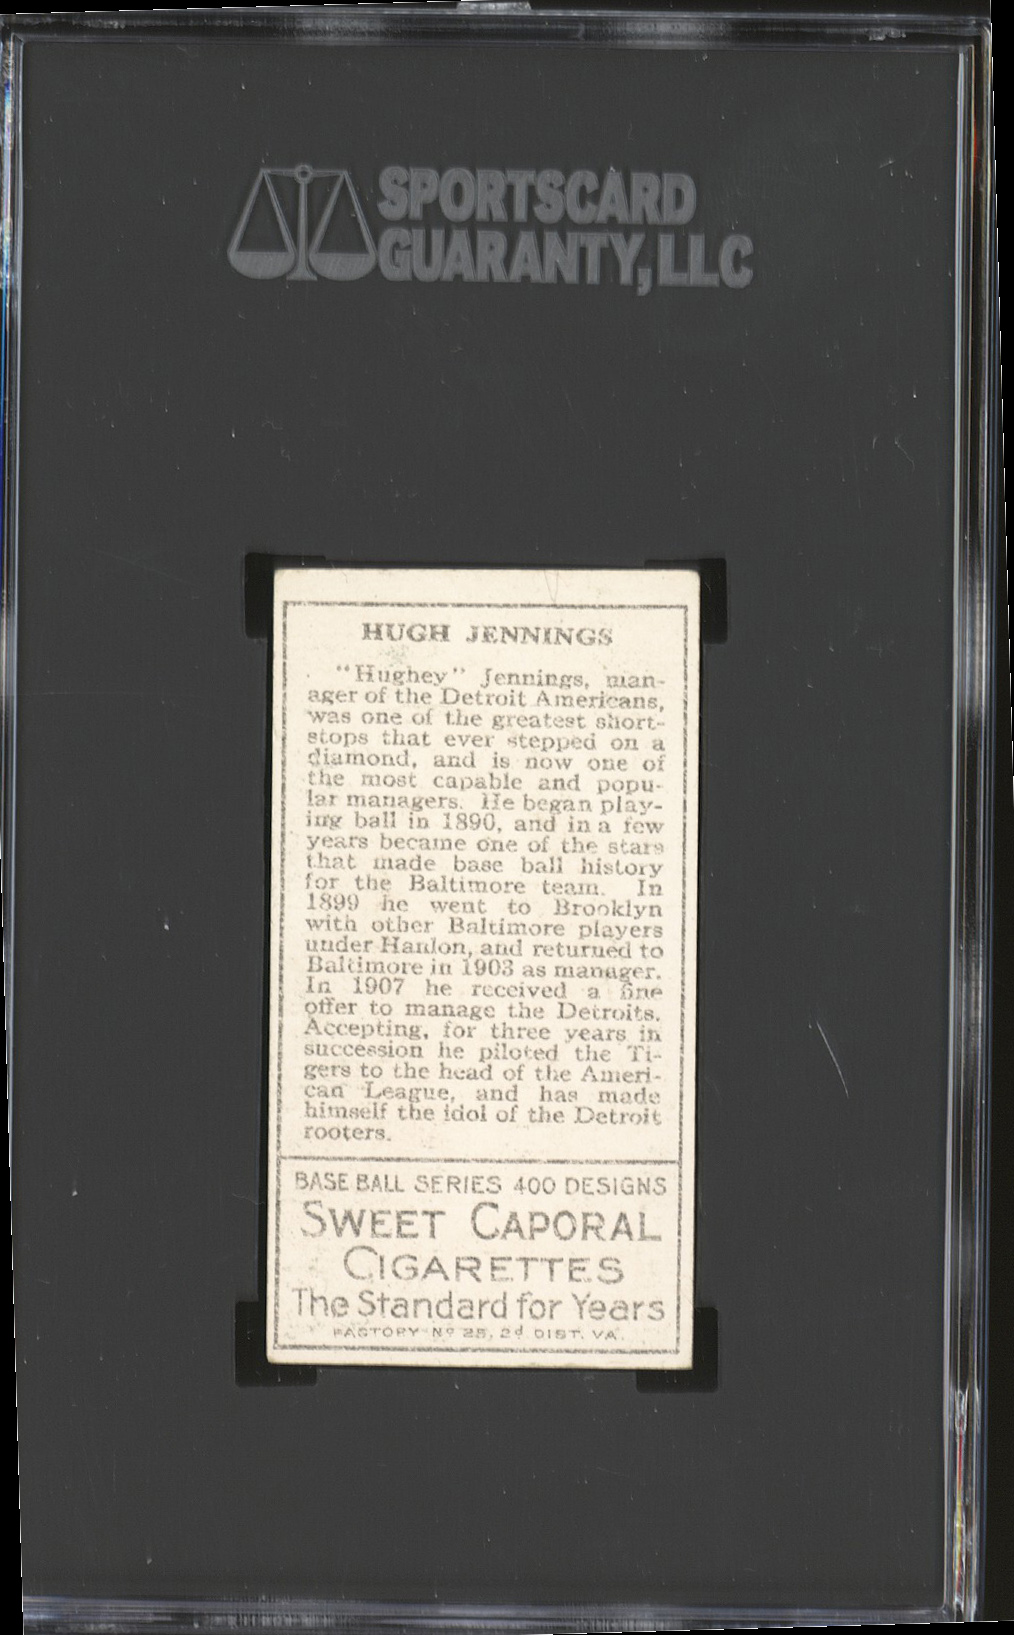 SPORTSCARD
GUARANTY, LLC
HUGH JENNINGS
"Hughey" Jennings, man-
ager of the Detroit Americans,
was one of the greatest short-
stops that ever stepped on a
diamond, and is now one of
the most capable and popu-
lar managers. He began play-
ing ball in 1890, and in a few
years became one of the stars
that made base ball history
for the Baltimore team. In
1899 he went to Brooklyn
with other Baltimore players
under Hanlon, and returned to
Baltimore in 1903 as manager.
In 1907 he received a fine
offer to manage the Detroits.
Accepting, for three years in
succession he piloted the Ti-
gers to the head of the Ameri-
can League, and has made
himself the idol of the Detroit
rooters.
BASE BALL SERIES 400 DESIGNS
SWEET CAPORAL
CIGARETTES
The Standard for Years
FACTORY Nº 25, 2d DIST. VA.